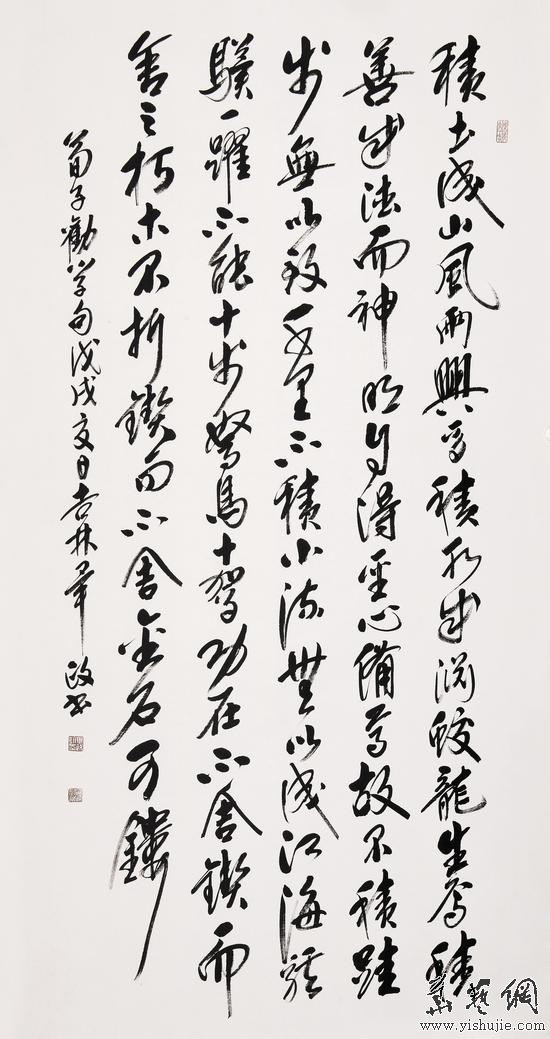 積土成山風雨興焉積水成淵蛟龍生焉積
善成德而神明自得聖心備焉故不積跬
步無以致千里不積小流無以成江海騏
驥一躍不能十步駑馬十駕功在不舍鍥而
舍之朽木不折鍥而不舍金石可鏤
荀子勸學句戊戌夏日吉林政書
藝網
www.yishujie.com